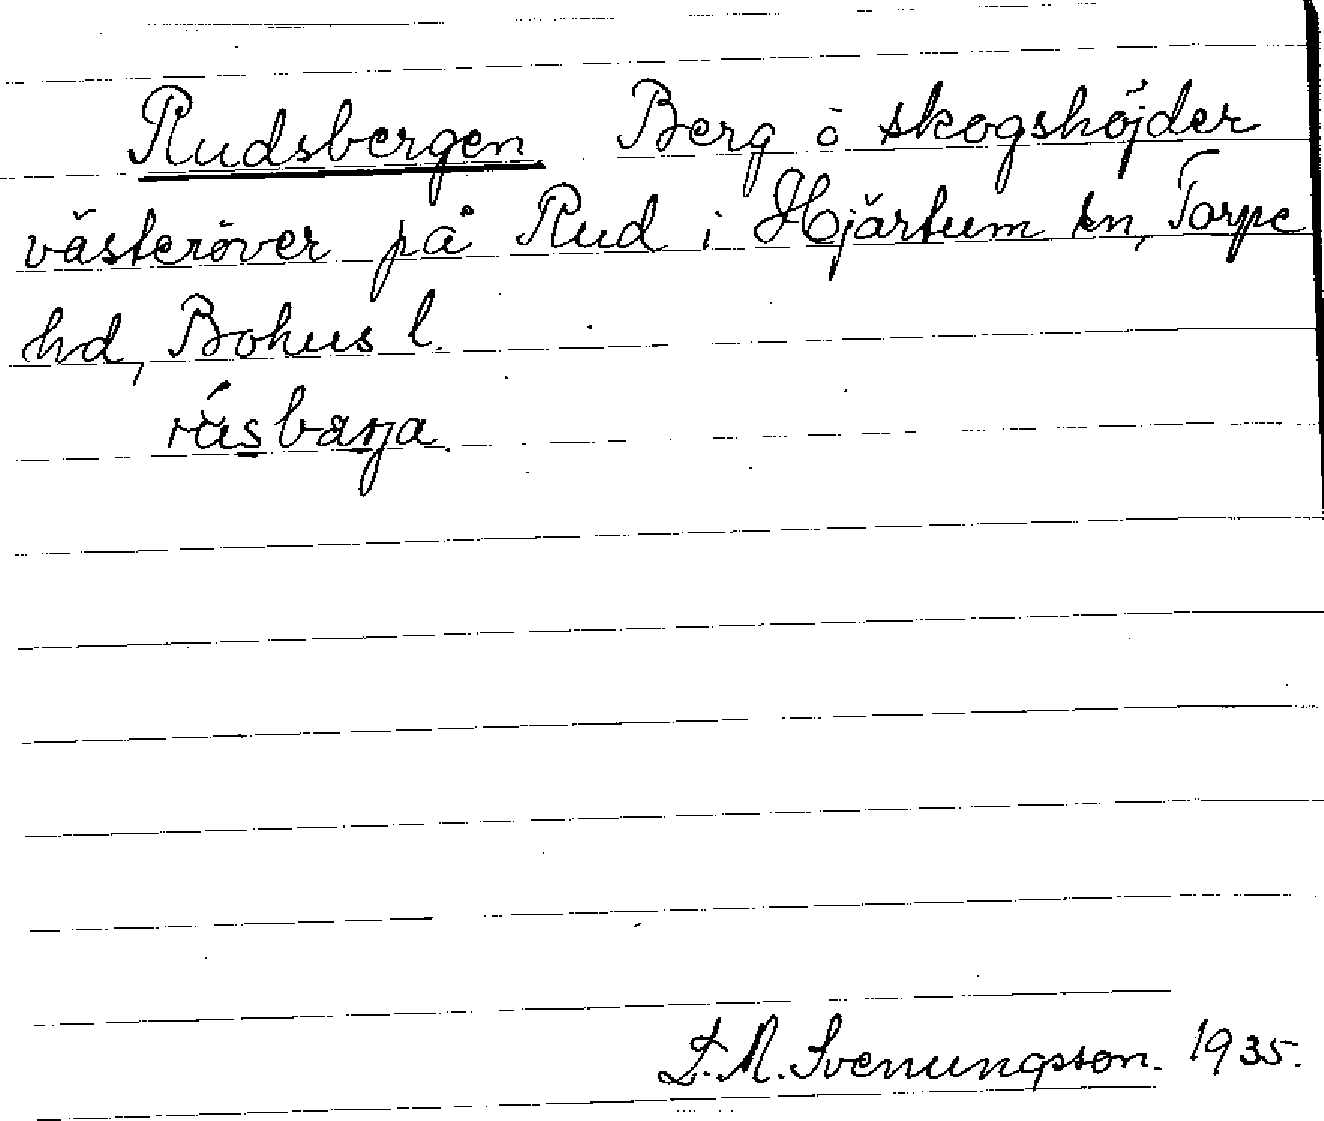 Rudsbergen Berg o skogshöjder
västeröver på Rud i Hjärtum sn, Torpe
hd, Bohus l.
räsbarja
S. M. Svenungsson. 1935.